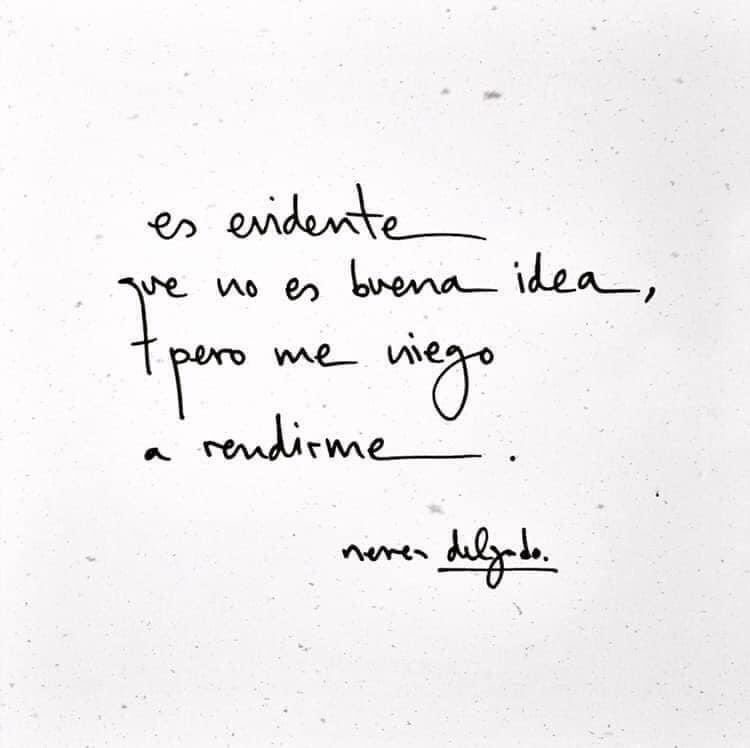 es evidente
que no es buena idea,
pero me niego
a rendirme.
nerea delgado.